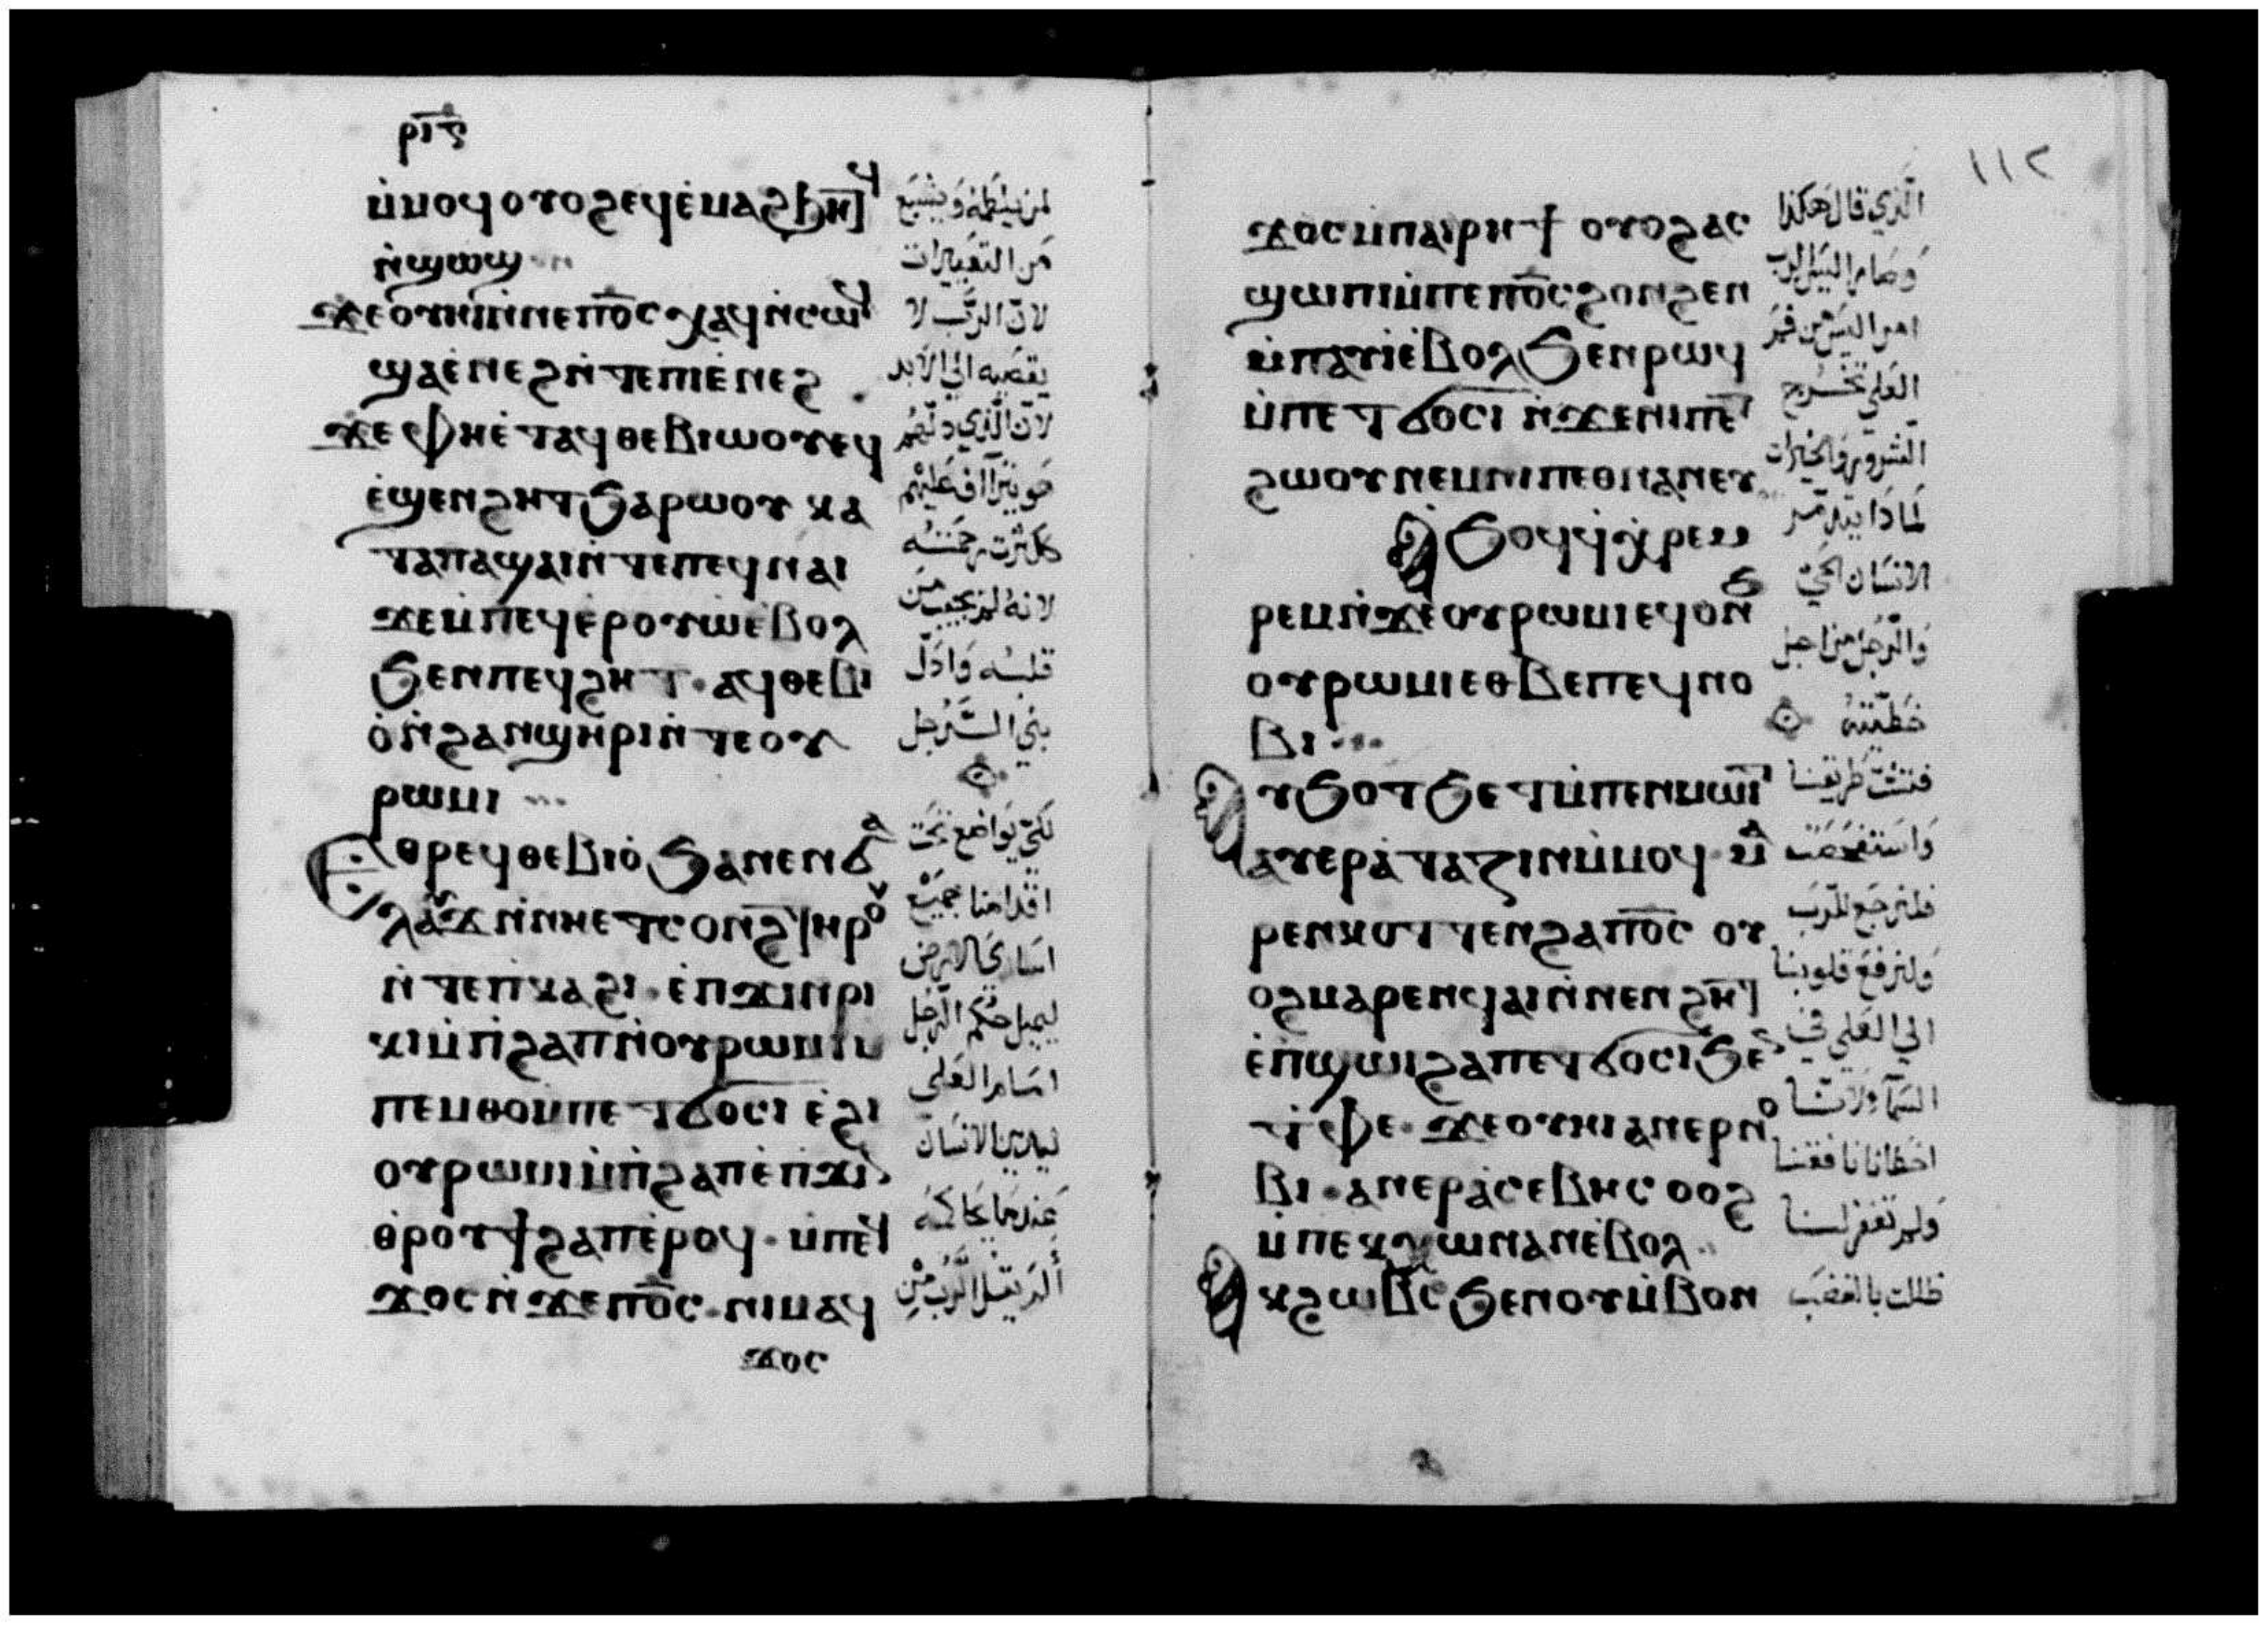 ⲣⲓⲋ
ⲙ̀ⲙⲟϥ ⲟⲩⲟϩ ⲉϥⲉ̀ⲙⲁϩϧⲏⲧϥ
ⲛ̀ϣⲱϣ
ϫⲉ ⲟⲩⲏⲓ ⲛ̀ⲛⲉⲡⲟ̅ⲥ̅ ⲭⲁϥ ⲛ̀ⲥⲱϥ
ϣⲁⲉ̀ⲛⲉϩ ⲛ̀ⲧⲉⲡⲓⲉ̀ⲛⲉϩ
ϫⲉ ⲫⲏⲉ̀ⲧⲁϥⲑⲉⲃⲓⲱⲟⲩ ⲉϥ
ⲉ̀ϣⲉⲛϩⲏⲧ ϧⲁⲣⲱⲟⲩ ⲕⲁ
ⲧⲁⲡⲁϣⲁⲓ ⲛ̀ⲧⲉⲡⲉϥⲛⲁⲓ
ϫⲉ ⲙ̀ⲡⲉϥⲉⲣⲟⲩⲱ ⲉ̀ⲃⲟⲗ
ϧⲉⲛⲡⲉϥϩⲏⲧ · ⲁϥⲑⲉⲃⲓ
ⲟ̀ ⲛ̀ϩⲁⲛϣⲏⲣⲓ ⲛ̀ⲧⲉⲟⲩ
ⲣⲱⲙⲓ
Ⲉⲑⲣⲉϥⲑⲉⲃⲓⲟ̀ ϧⲁⲛⲉⲛϭⲁ
ⲗⲁⲩϫ ⲛ̀ⲛⲏⲉⲧⲥⲟⲛϩ ⲧⲏⲣⲟⲩ
ⲛ̀ⲧⲉⲡ̀ⲕⲁϩⲓ · ⲉ̀ⲡ̀ϫⲓⲛⲣⲓ
ⲕⲓ ⲙ̀ⲡ̀ϩⲁⲡ ⲛ̀ⲟⲩⲣⲱⲙⲓ ⲙ̀
ⲡⲉⲙⲑⲟ ⲙ̀ⲡⲉⲧϭⲟⲥⲓ ⲉ̀ϩⲓ
ⲟⲩⲣⲱⲙⲓ ⲙ̀ⲡ̀ϩⲁⲡ ⲉ̀ⲡ̀ϫⲓⲛ
ⲑ̀ⲣⲟⲩϯϩⲁⲡ ⲉ̀ⲣⲟϥ · ⲙ̀ⲡⲉϥ
ϫⲟⲥ ⲛ̀ϫⲉⲡⲟ̅ⲥ̅ · ⲛⲓⲙ ⲁϥ
ϫⲟⲥ
لمن يلطمه ويشبع
من التعييرات
لان الرب لا
يقصيه الي الابد
لان الذي دلهم
هو يترااف عليهم
كلثرت رحمته
لانه لم يجيب من
قلبه واذل
بني الرجل
لكي يواضع تحت
اقدامنا جميع
اساري الارض
ليميل حكم الرجل
امام العلي
ليدين الانسان
عندما يحاكمه
ألم يقل الرب من
١١٢
ϫⲟⲥ ⲙ̀ⲡⲁⲓⲣⲏϯ ⲟⲩⲟϩ ⲁⲥ
ϣⲱⲡⲓ ⲙ̀ⲡⲉⲡⲟ̅ⲥ̅ ϩⲟⲛϩⲉⲛ
ⲉⲩⲛⲁⲩⲓ̀ ⲉ̀ⲃⲟⲗ ϧⲉⲛⲣⲱϥ
ⲙ̀ⲡⲉⲧϭⲟⲥⲓ ⲛ̀ϫⲉⲛⲓⲡⲉⲧ
ϩⲱⲟⲩ ⲛⲉⲙⲛⲓⲡⲉⲑⲛⲁⲛⲉⲩ
Ⲉϧⲟϥ ϥ̀ⲭ̀ⲣⲉⲙ
ⲣⲉⲙ ⲛ̀ϫⲉⲟⲩⲣⲱⲙⲓ ⲉϥⲟⲛϧ
ⲟⲩⲣⲱⲙⲓ ⲉⲑⲃⲉⲡⲉϥⲛⲟ
ⲃⲓ
Ⲁⲩϧⲟⲧϧⲉⲧ ⲙ̀ⲡⲉⲛⲙⲱⲓⲧ
ⲁⲩⲉⲣⲁ̀ⲧⲁⲍⲓⲛ ⲙ̀ⲙⲟϥ · ⲙⲁ
ⲣⲉⲛⲕⲟⲧⲧⲉⲛ ϩⲁⲡⲟ̅ⲥ̅ ⲟⲩ
ⲟϩ ⲙⲁⲣⲉⲛϥⲁⲓ ⲛ̀ⲛⲉⲛϩⲏⲧ
ⲉ̀ⲡ̀ϣⲱⲓ ϩⲁⲡⲉⲧϭⲟⲥⲓ ϧⲉⲛ
ⲧ̀ⲫⲉ · ϫⲉ ⲟⲩⲏⲓ ⲁⲛⲉⲣⲛⲟ
ⲃⲓ · ⲁⲛⲉⲣⲁ̀ⲥⲉⲃⲏⲥ ⲟⲟϩ
ⲙ̀ⲡⲉⲕⲭⲱ ⲛⲁⲛ ⲉ̀ⲃⲟⲗ
Ⲁⲕϩⲱⲃⲥ ϧⲉⲛⲟⲩⲙ̀ⲃⲟⲛ
الذي قال هكذا
وصام اليس الرب
امر اليس من فم
العلي تخرج
الشرور والخيرات
لماذا يتذمر
الانسان الحي
والرجل من اجل
خطيته
فتشت طريقنا
فلنرجع للرب
ولنرفع قلوبنا
الي العلي في
السما لاننا
اخطانا نافقنا
ولم تغفر لنا
ظللت بالغضب